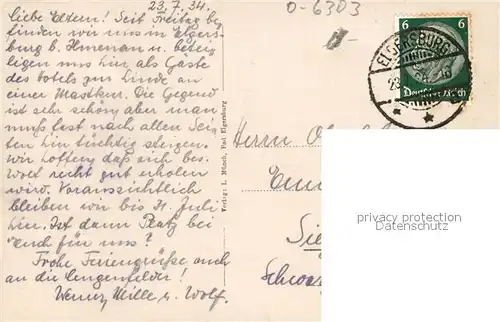 23.7.34.
0-6303
Liebe Eltern! Seit Freitag be-
finden wir uns in Elgers-
burg b. Ilmenau u. betei-
ligen uns hier als Gäste
des Hotels zur Linde an
einer Mastkur. Die Gegend
ist sehr schön, aber man
muß fast nach allen Sei-
ten hin tüchtig steigen.
Wir hoffen, daß sich bes.
Wolf recht gut erholen
wird. Voraussichtlich
bleiben wir bis 31. Juli
hier. Ist dann Platz bei
Euch für uns?
Frohe Feriengrüße auch
an die Lengenfelder!
Werner, Hille u. Wolf.
Verlag: L. Münch, Bad Elgersburg
6 6
Deutsches Reich
ELGERSBURG
Herrn
privacy protection
www.oldthing.de